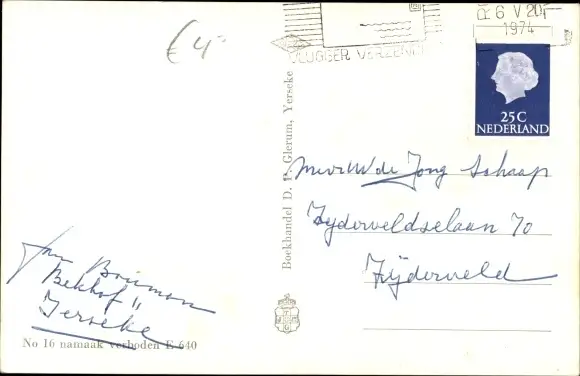 € 4-
VLUGGER VERZENDEN
6 V 20
1974
25C
NEDERLAND
Boekhandel D. P. Glerum, Yerseke
de Jong Schaap
Zyderveldselaan 70
Zijderveld
Jan Bouman
"Bekhof"
Ierseke
No 16 namaak verboden E 640